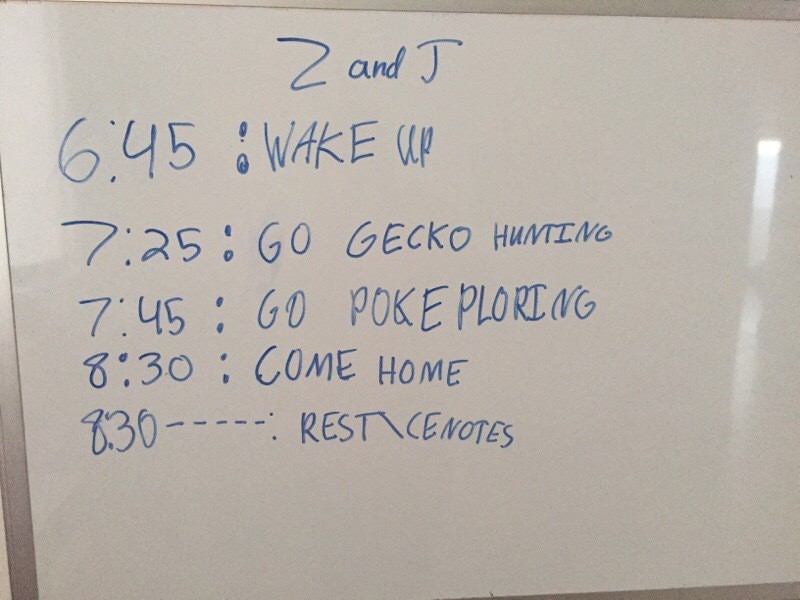 Z and J
6:45 : WAKE UP
7:25 : GO GECKO HUNTING
7:45 : GO POKEPLORING
8:30 : COME HOME
8:30 - - - - - : REST\CENOTES